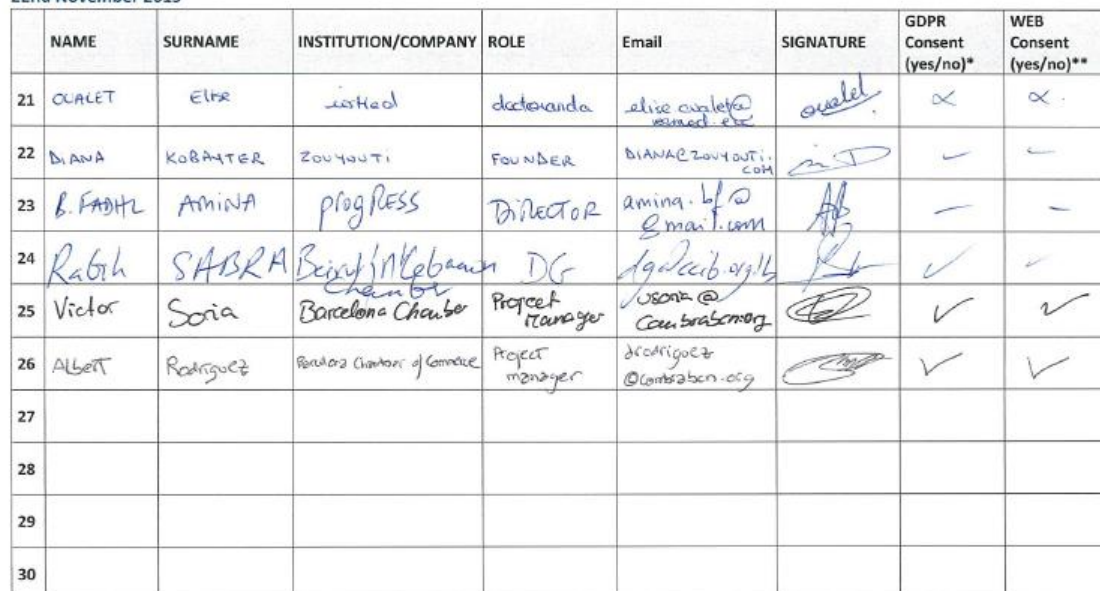 22nd November 2019
NAME SURNAME INSTITUTION/COMPANY ROLE Email SIGNATURE GDPR Consent (yes/no)* WEB Consent (yes/no)**
21 OUALET Elise doctoranda
22 DIANA KOBAYTER ZOUYOUTI FOUNDER DIANA@ZOUYOUTI.COM
23 B. FADHL AMINA progRESS DIRECTOR amina.bf@gmail.com
24 RaGih SABRA Chamber DG dg@ccib.org.lb
25 Victor Soria Barcelona Chamber Project Manager vsoria@cambrabcn.org
26 Albert Rodriguez Chamber of Commerce Project manager arodriguez@cambrabcn.org
27
28
29
30